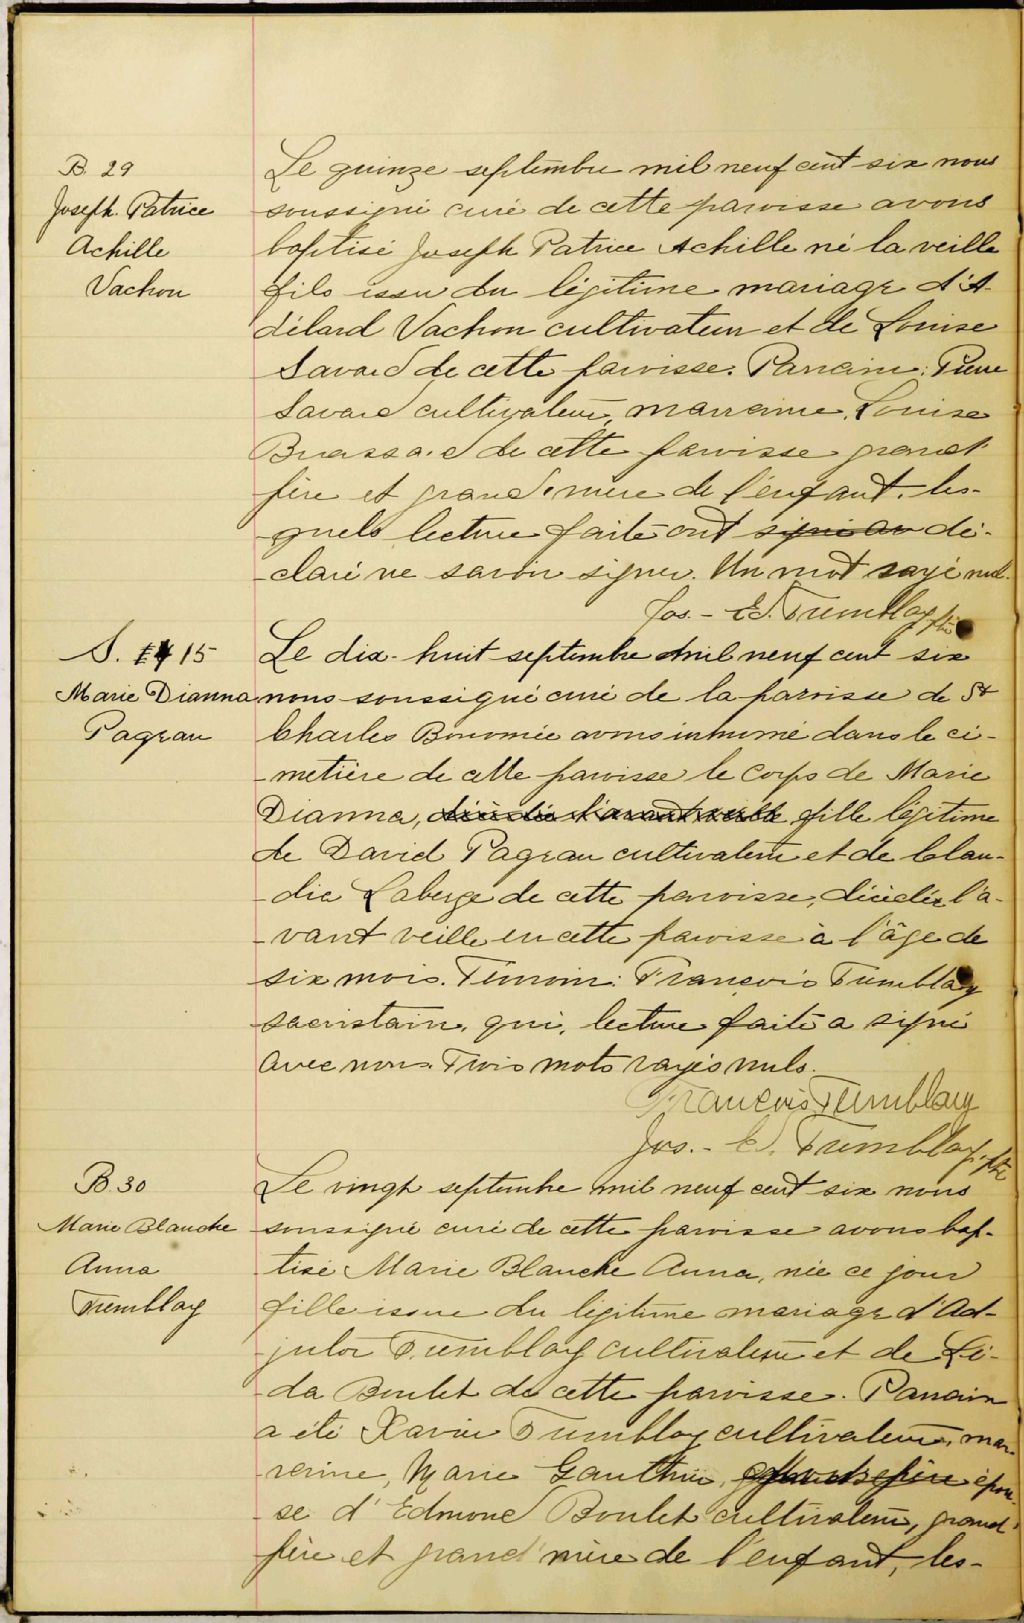 B. 29
Joseph Patrice
Achille
Vachon
Le quinze septembre mil neuf cent six nous
soussigné curé de cette paroisse avons
baptisé Joseph Patrice Achille né la veille
fils issu du légitime mariage d'A-
délard Vachon cultivateur et de Louise
Savard de cette paroisse. Parrain: Pierre
Savard cultivateur, marraine, Louise
Brassard de cette paroisse grand
père et grand'mère de l'enfant, les-
quels lecture faite ont dé-
claré ne savoir signer. Un mot rayé nul.
Jos.-Ed. Tremblay ptre
S. 15
Marie Dianna
Pageau
Le dix-huit septembre mil neuf cent six
nous soussigné curé de la paroisse de St
Charles Boromée avons inhumé dans le ci-
metière de cette paroisse le corps de Marie
Dianna, décédée l'avant veille fille légitime
de David Pageau cultivateur et de Clau-
dia Laberge de cette paroisse, décédée l'a-
vant veille en cette paroisse à l'âge de
six mois. Témoin: François Tremblay
sacristain, qui, lecture faite a signé
avec nous. Trois mots rayés nuls.
François Tremblay
Jos.-Ed. Tremblay, ptre
B. 30
Marie Blanche
Anna
Tremblay
Le vingt septembre mil neuf cent six nous
soussigné curé de cette paroisse avons bap-
tisé Marie Blanche Anna, née ce jour
fille issue du légitime mariage d'Ad-
jutor Tremblay cultivateur et de Lé-
da Boulet de cette paroisse. Parrain
a été Xavier Tremblay cultivateur, mar-
raine, Marie Gauthier, épou-
se d'Edmond Boulet cultivateur, grand'
père et grand'mère de l'enfant, les-